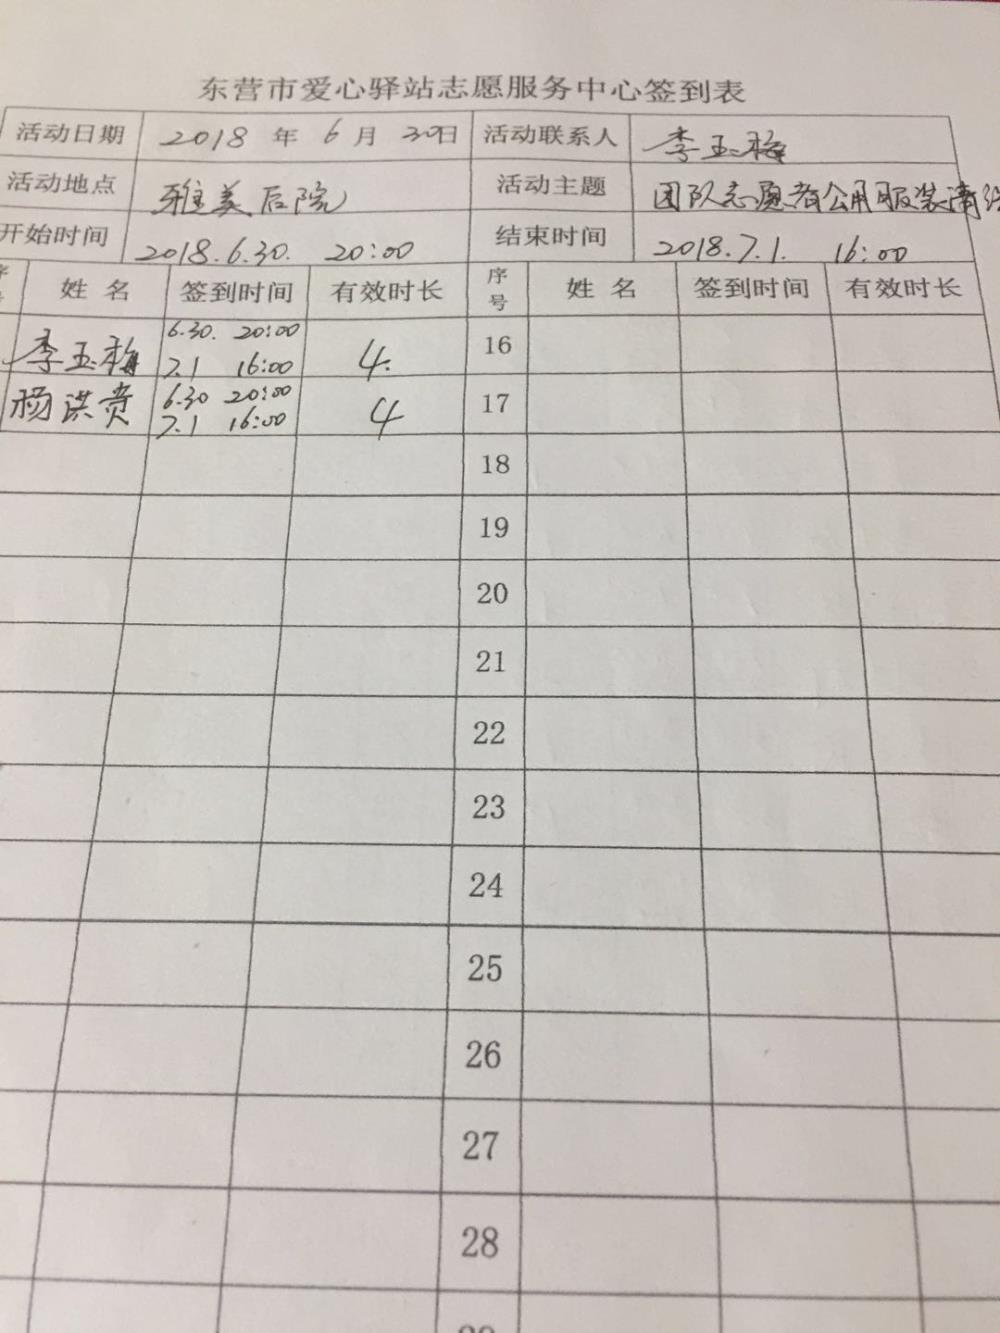 东营市爱心驿站志愿服务中心签到表
活动日期 2018 年 6 月 30日 活动联系人 李玉梅
活动地点 雅美后院 活动主题 团队志愿者公用服装清
开始时间 2018.6.30. 20:00 结束时间 2018.7.1. 16:00
姓名 签到时间 有效时长 序号 姓名 签到时间 有效时长
李玉梅 6.30. 20:00 7.1 16:00 4. 16
杨洪贵 6.30 20:00 7.1 16:00 4 17
18
19
20
21
22
23
24
25
26
27
28